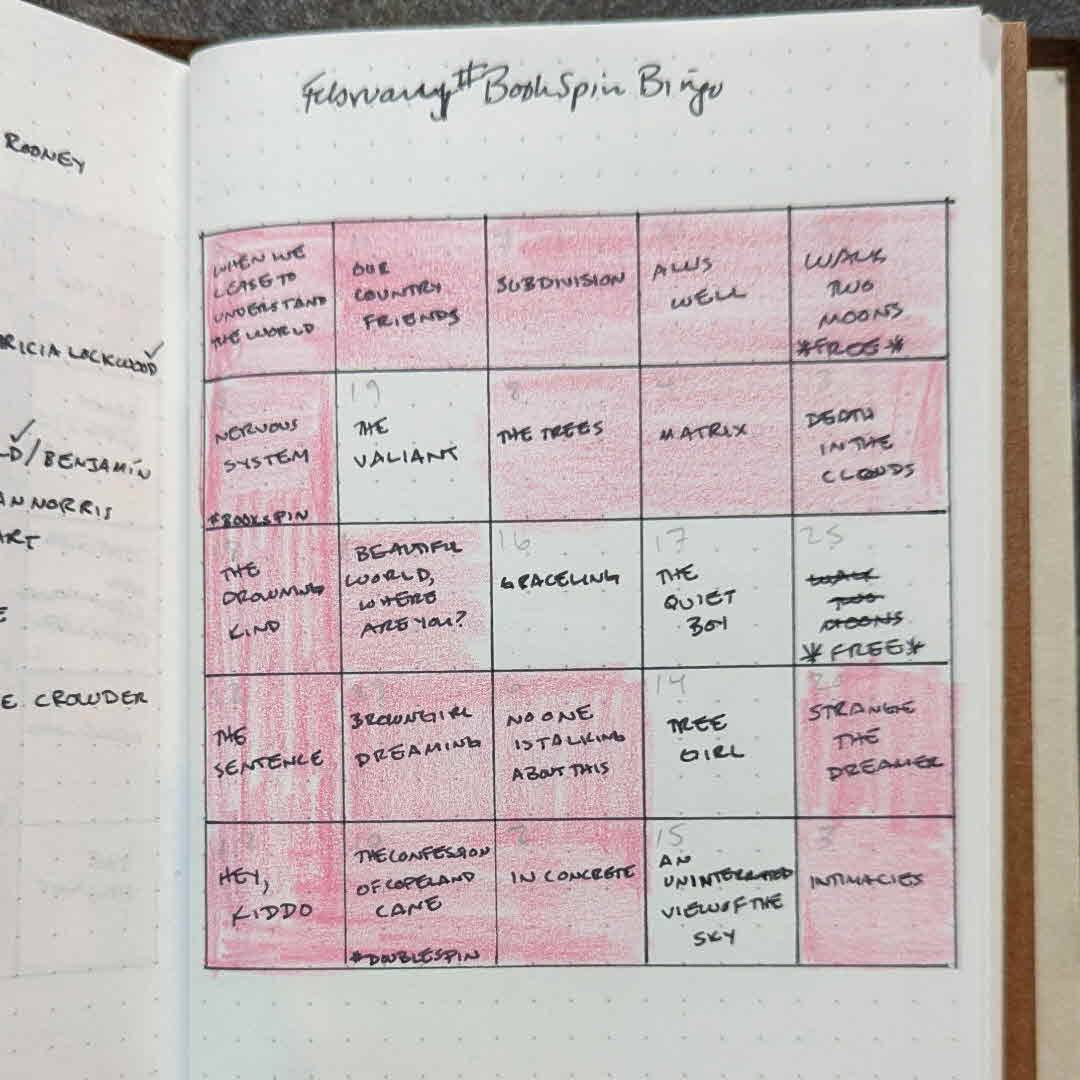 ROONEY
RICIA LOCKWOOD ✓
✓
D/BENJAMÍN
AN NORRIS
ART
E
E CROWDER
February #BookSpin Bingo
WHEN WE
CEASE TO
UNDERSTAND
THE WORLD
OUR
COUNTRY
FRIENDS
SUBDIVISION
ALL'S
WELL
WALK
TWO
MOONS
*FREE*
NERVOUS
SYSTEM
#BOOKSPIN
19
THE
VALIANT
8
THE TREES
MATRIX
DEATH
IN THE
CLOUDS
THE
DROWNING
KIND
BEAUTIFUL
WORLD,
WHERE
ARE YOU?
16
GRACELING
17
THE
QUIET
BOY
25
WALK
TWO
MOONS
*FREE*
THE
SENTENCE
BROWN GIRL
DREAMING
NO ONE
IS TALKING
ABOUT THIS
14
TREE
GIRL
STRANGE
THE
DREAMER
HEY,
KIDDO
THE CONFESSION
OF COPELAND
CANE
#DOUBLESPIN
2
IN CONCRETE
15
AN
VIEW OF THE
SKY
3
INTIMACIES